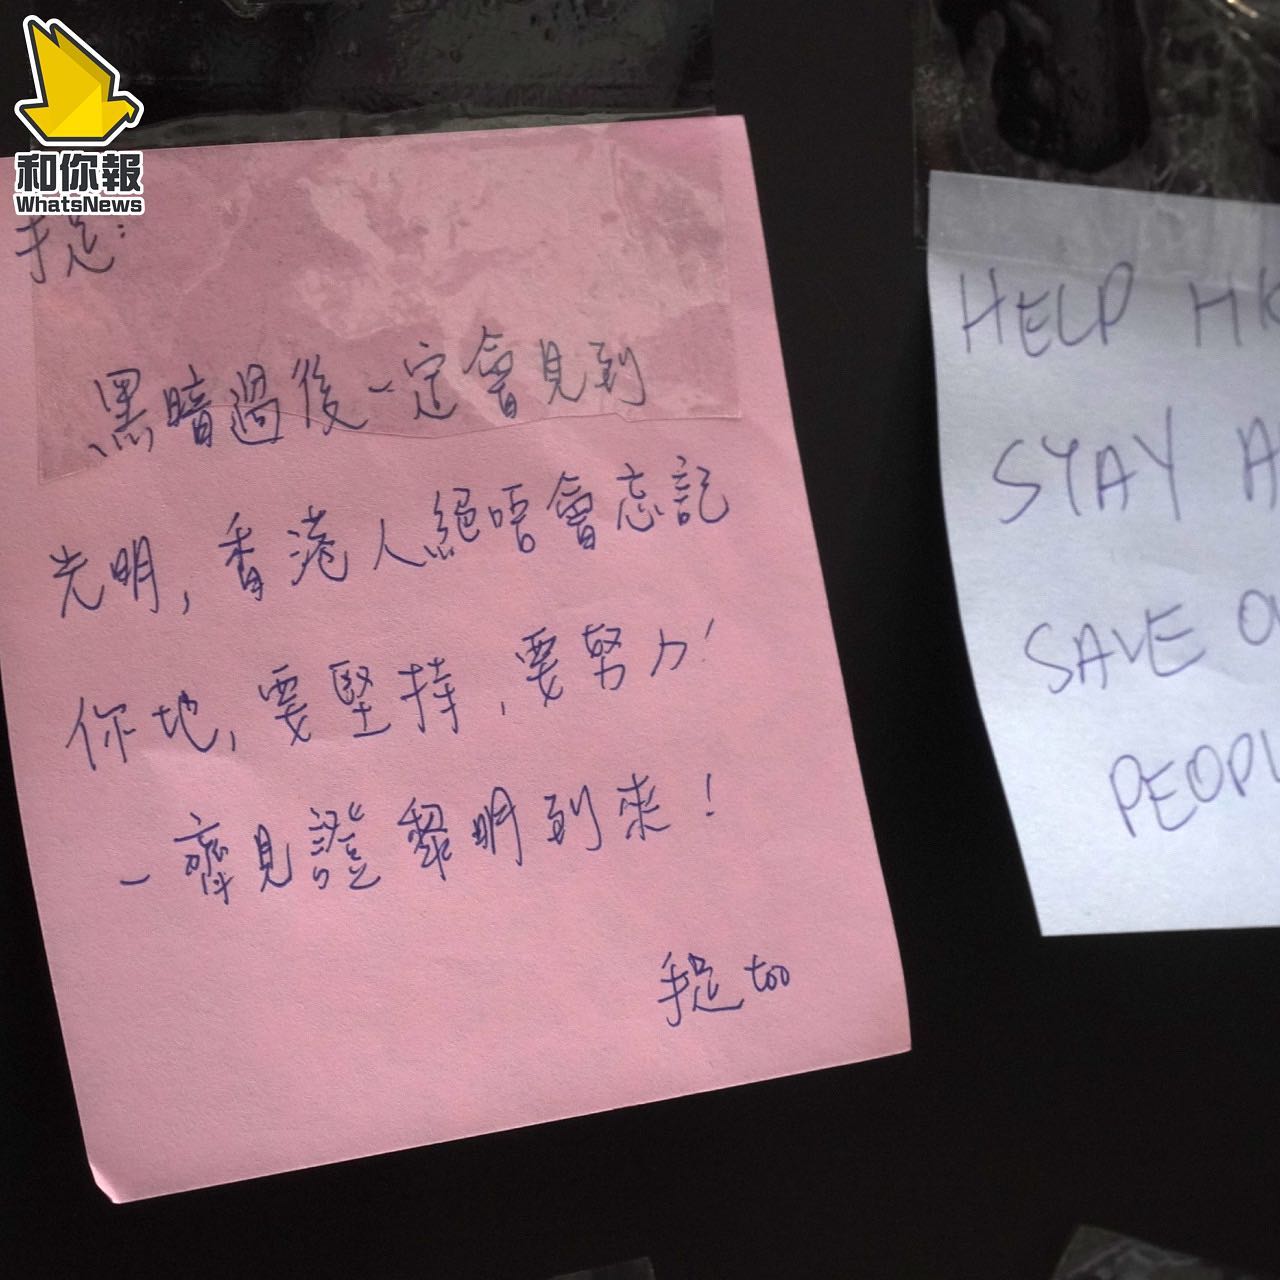 和你報
WhatsNews
手足：
黑暗過後一定會見到
光明，香港人絕唔會忘記
你地，要堅持，要努力！
一齊見證黎明到來！
手足 too
HELP HK
STAY A
SAVE O
PEOPL